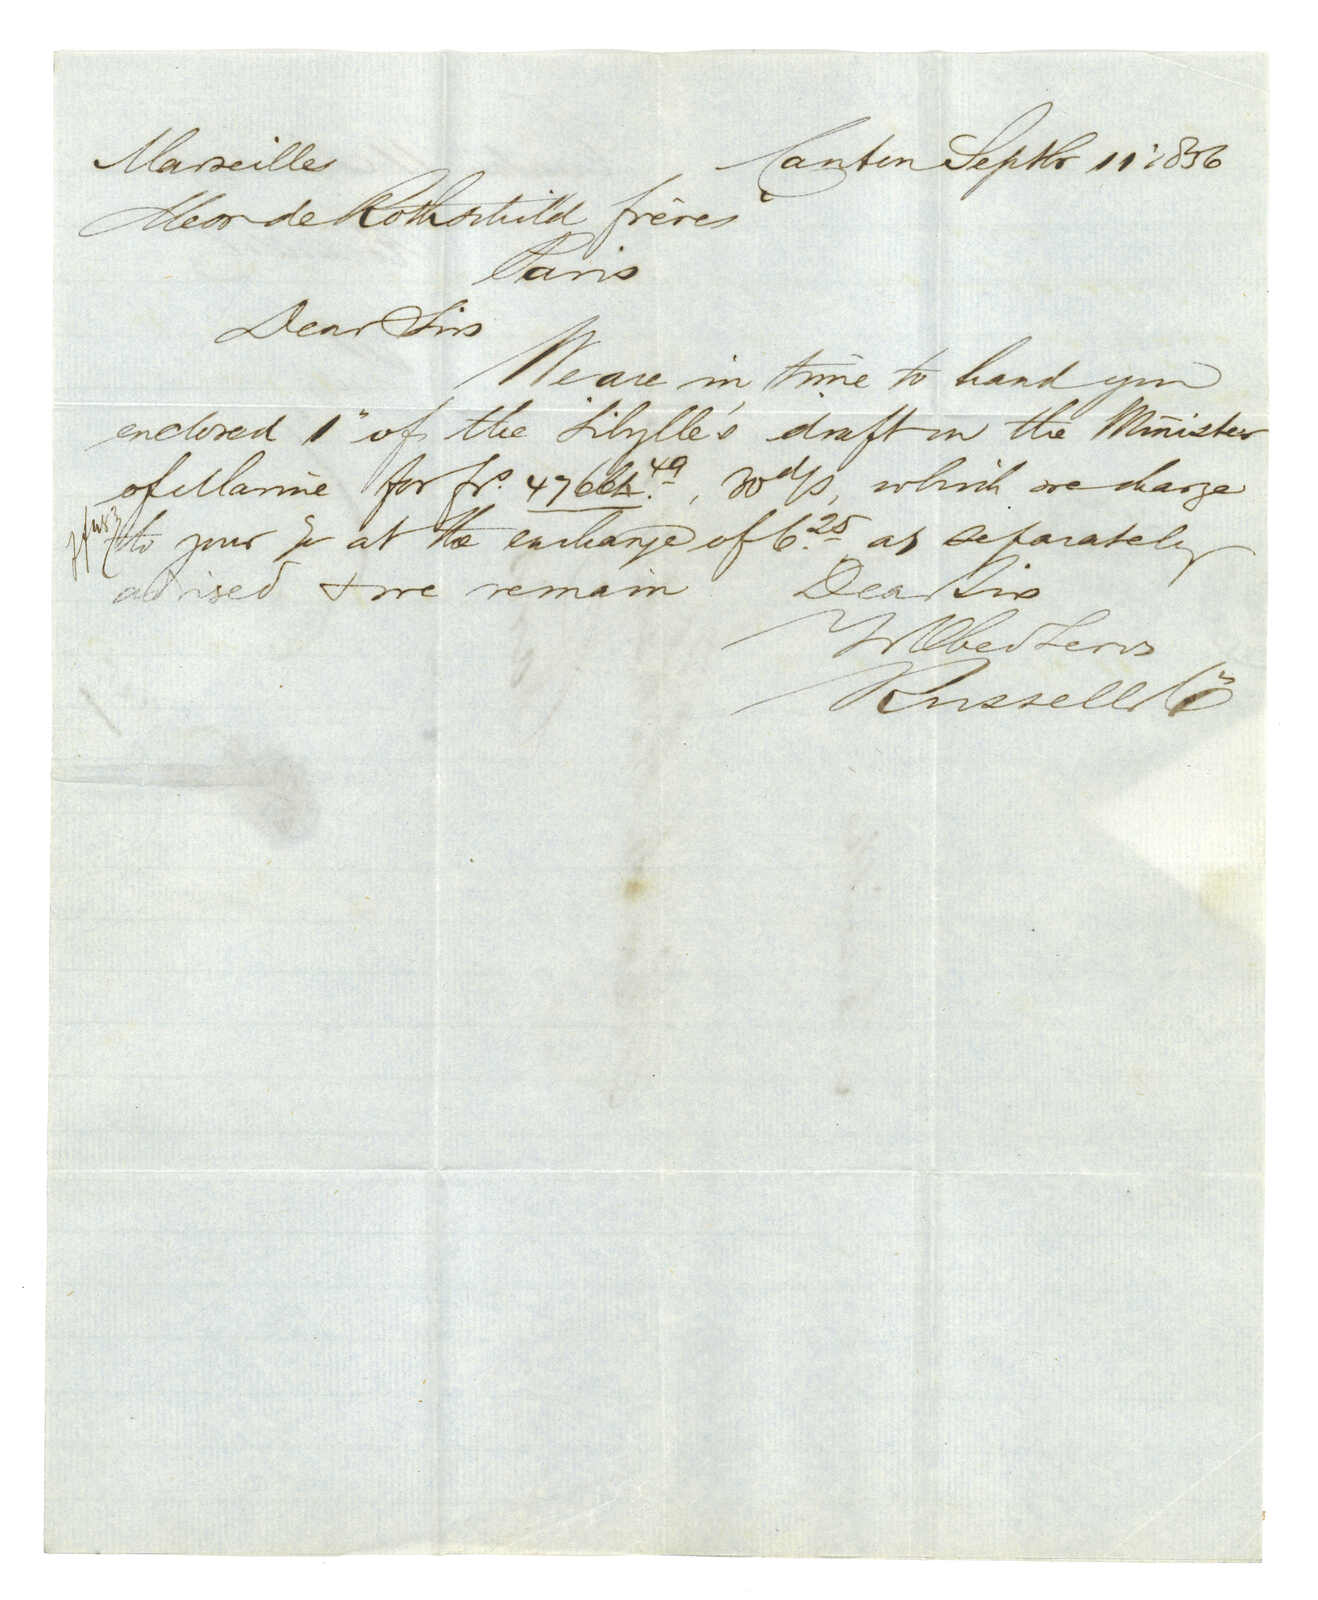 Marseilles Canton Septbr 11 1856
Messrs de Rothschild frères
Paris
Dear Sirs
We are in time to hand you
enclosed 1" of the Sibylle's draft on the Minister
of Marine for frs. 47664.49, 30 d/s, which we charge
to your a/c at the exchange of 6.25 as separately
advised & we remain Dear Sirs
Yr Obed Servs
Russell & Co